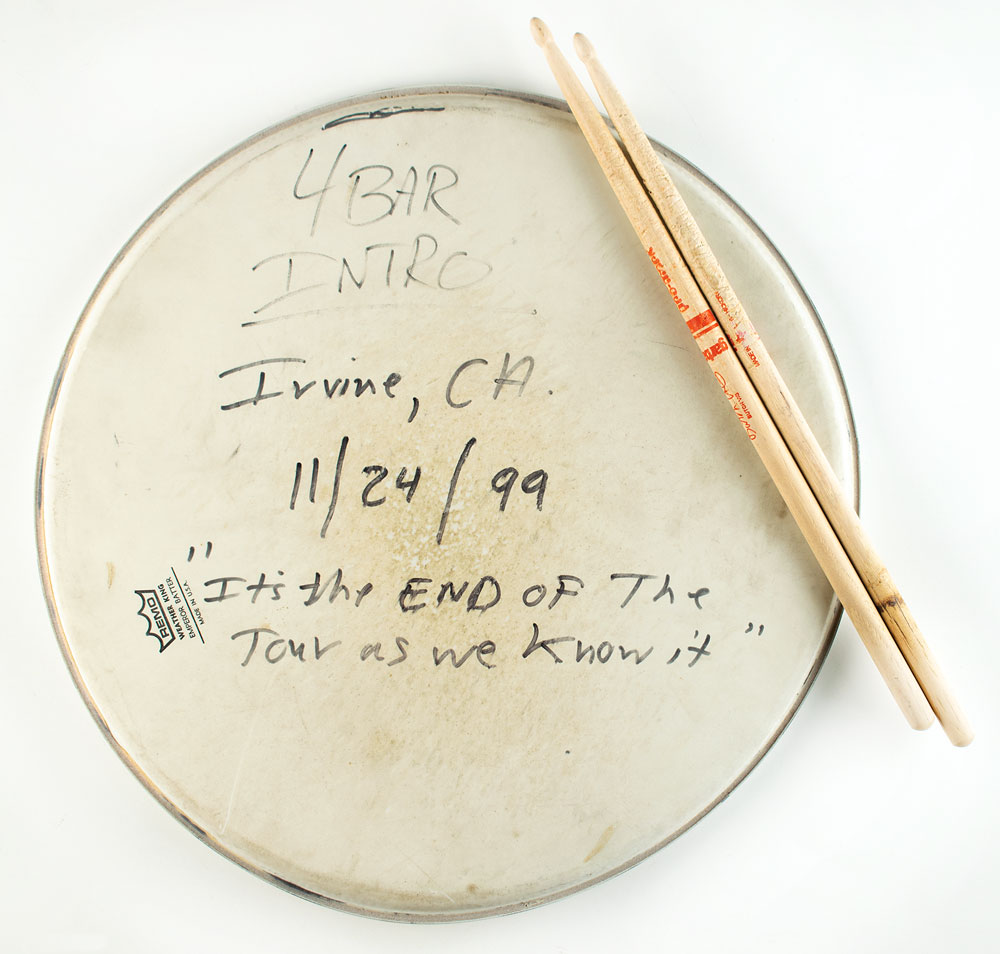 4 BAR
INTRO
Irvine, CA.
11/24/99
"It's the END OF The
Tour as we Know it"
REMO
WEATHER KING
EMPEROR BATTER
MADE IN U.S.A.
PRO-MARK